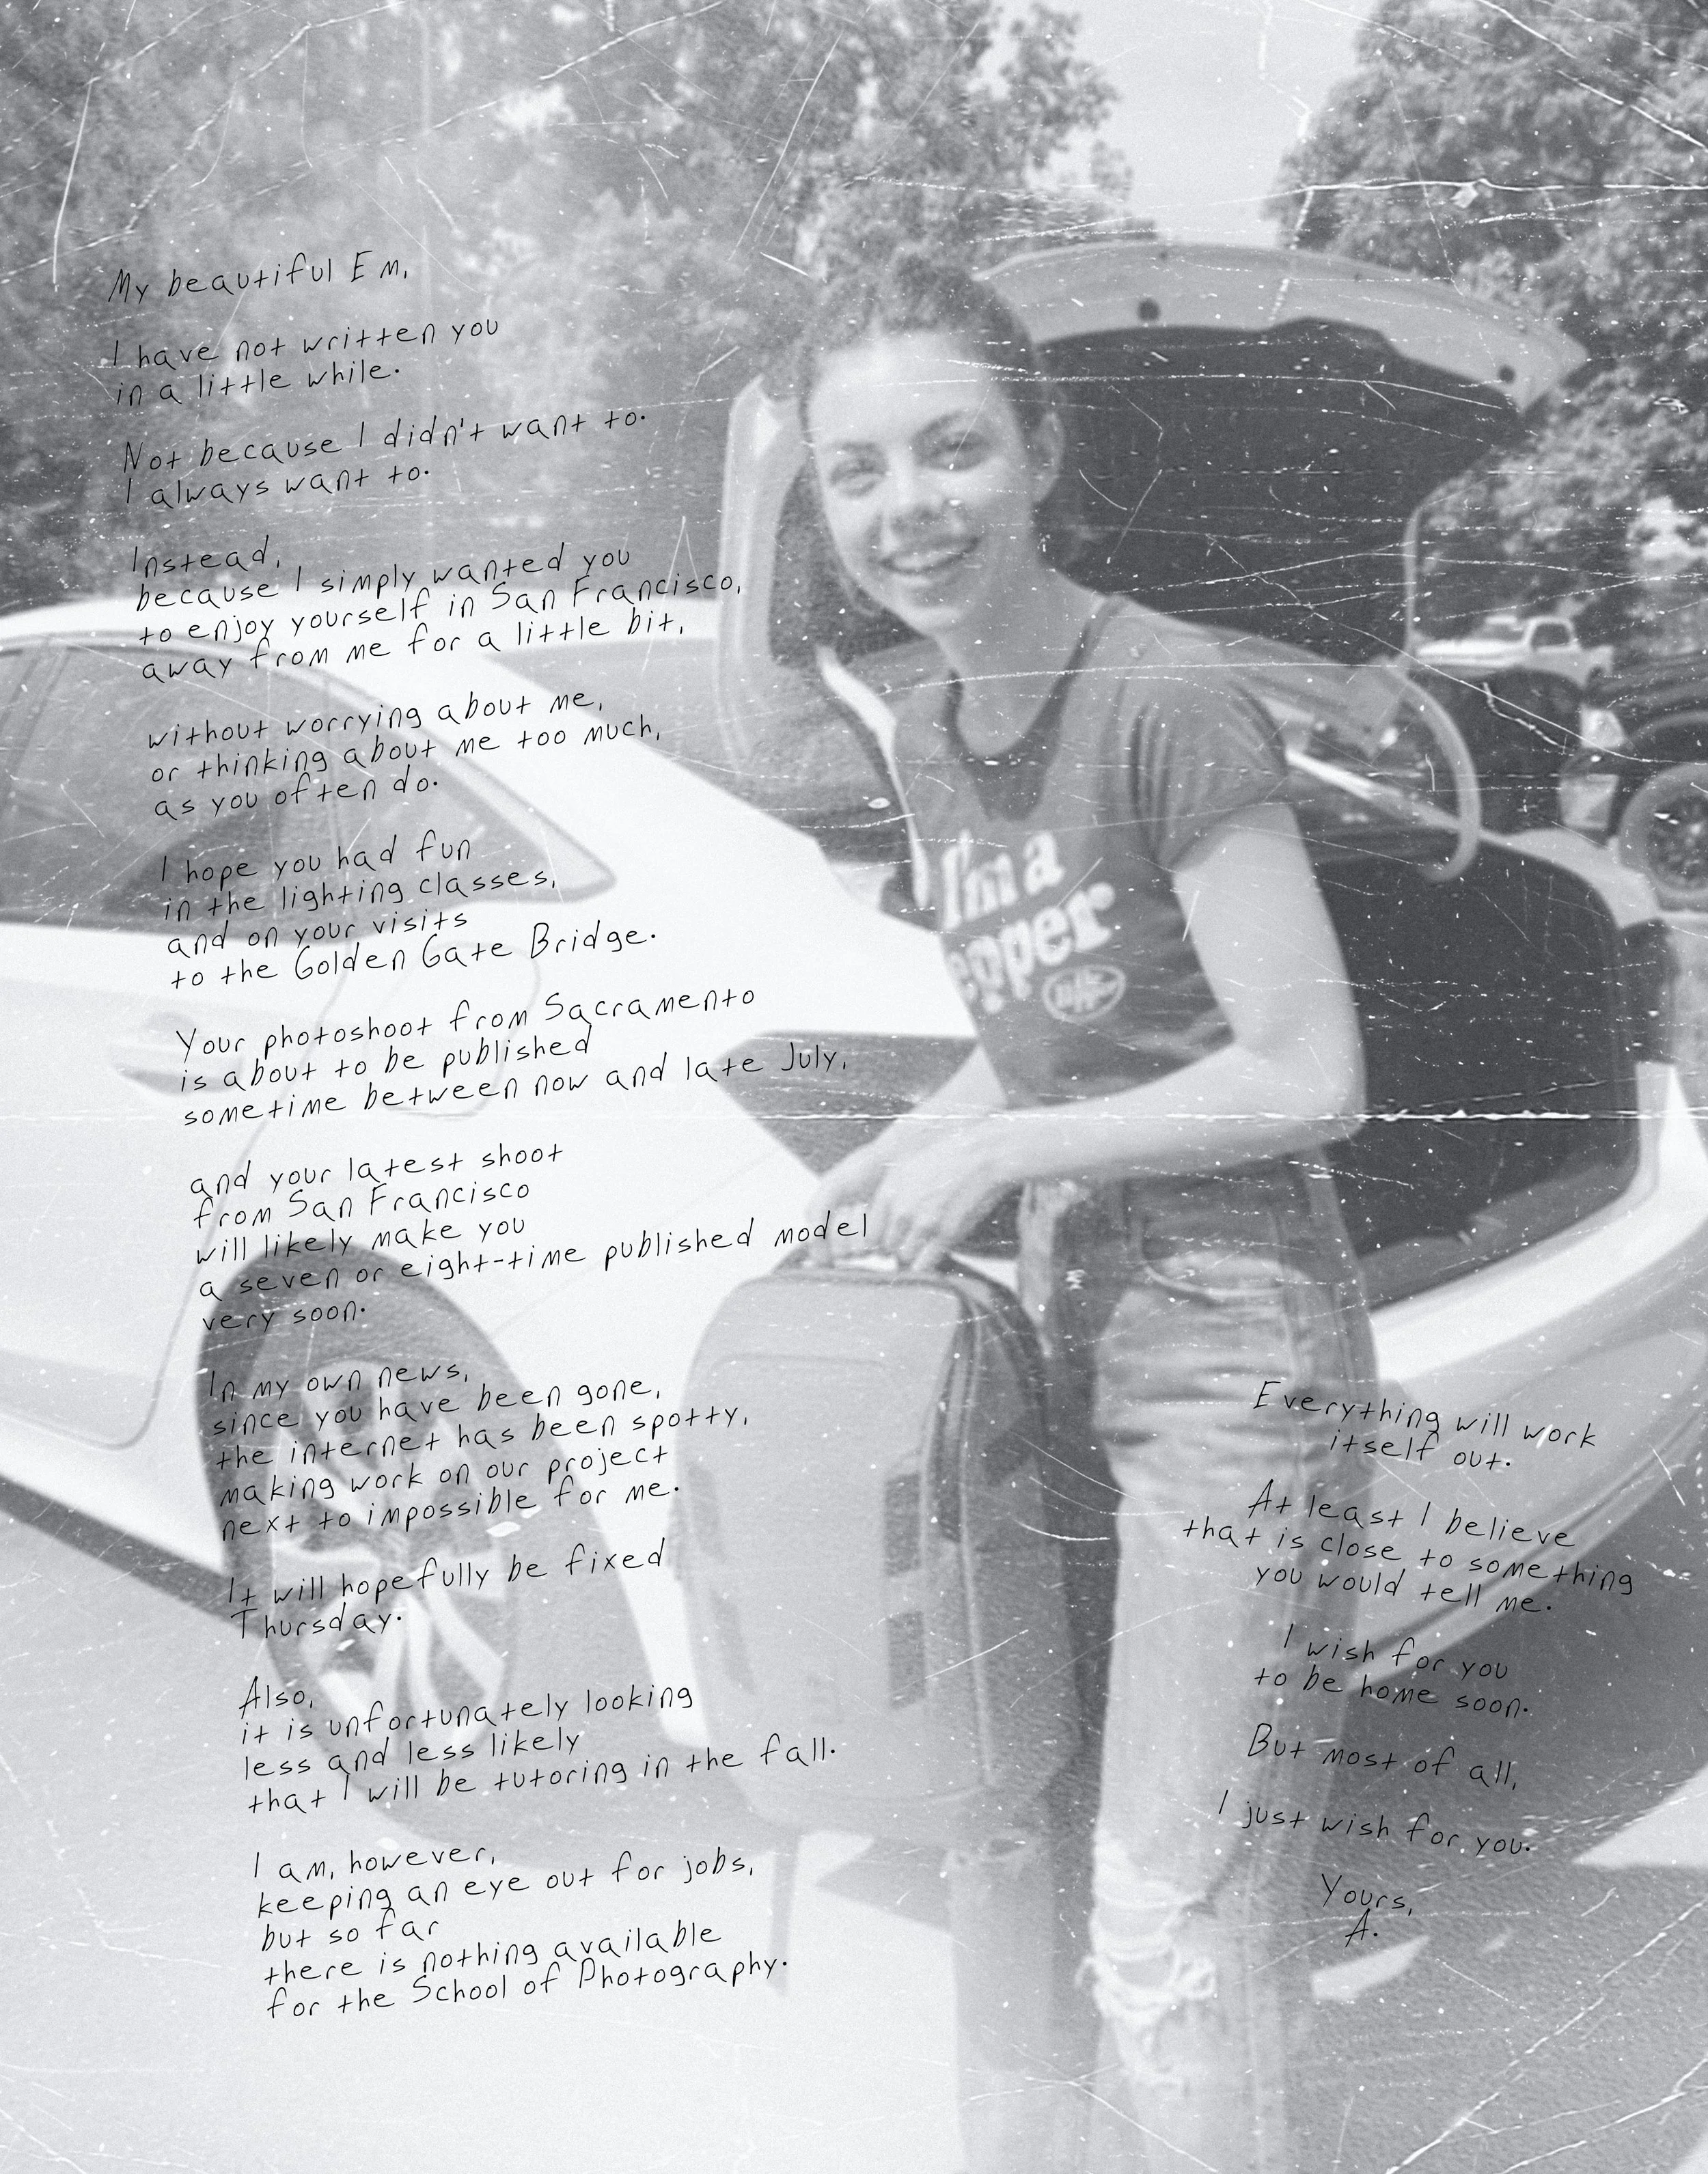 My beautiful Em,
I have not written you
in a little while.
Not because I didn't want to.
I always want to.
Instead,
because I simply wanted you
to enjoy yourself in San Francisco,
away from me for a little bit,
without worrying about me,
or thinking about me too much,
as you often do.
I hope you had fun
in the lighting classes,
and on your visits
to the Golden Gate Bridge.
Your photoshoot from Sacramento
is about to be published
sometime between now and late July,
and your latest shoot
from San Francisco
will likely make you
a seven or eight-time published model
very soon.
In my own news,
since you have been gone,
the internet has been spotty,
making work on our project
next to impossible for me.
It will hopefully be fixed
Thursday.
Also,
it is unfortunately looking
less and less likely
that I will be tutoring in the fall.
I am, however,
keeping an eye out for jobs,
but so far
there is nothing available
for the School of Photography.
I'm a
epper
Everything will work
itself out.
At least I believe
that is close to something
you would tell me.
I wish for you
to be home soon.
But most of all,
I just wish for you.
Yours,
A.